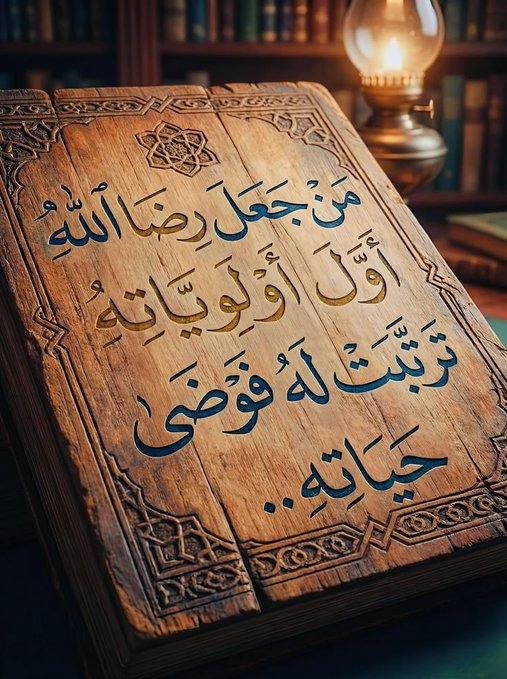 مَنْ جَعَلَ رِضَا اللهُ
أَوَّلَ أَوْلَوِيَّاتِهُ
تَرَتَّبَتْ لَهُ فَوْضَى
حَيَاتِهِ..